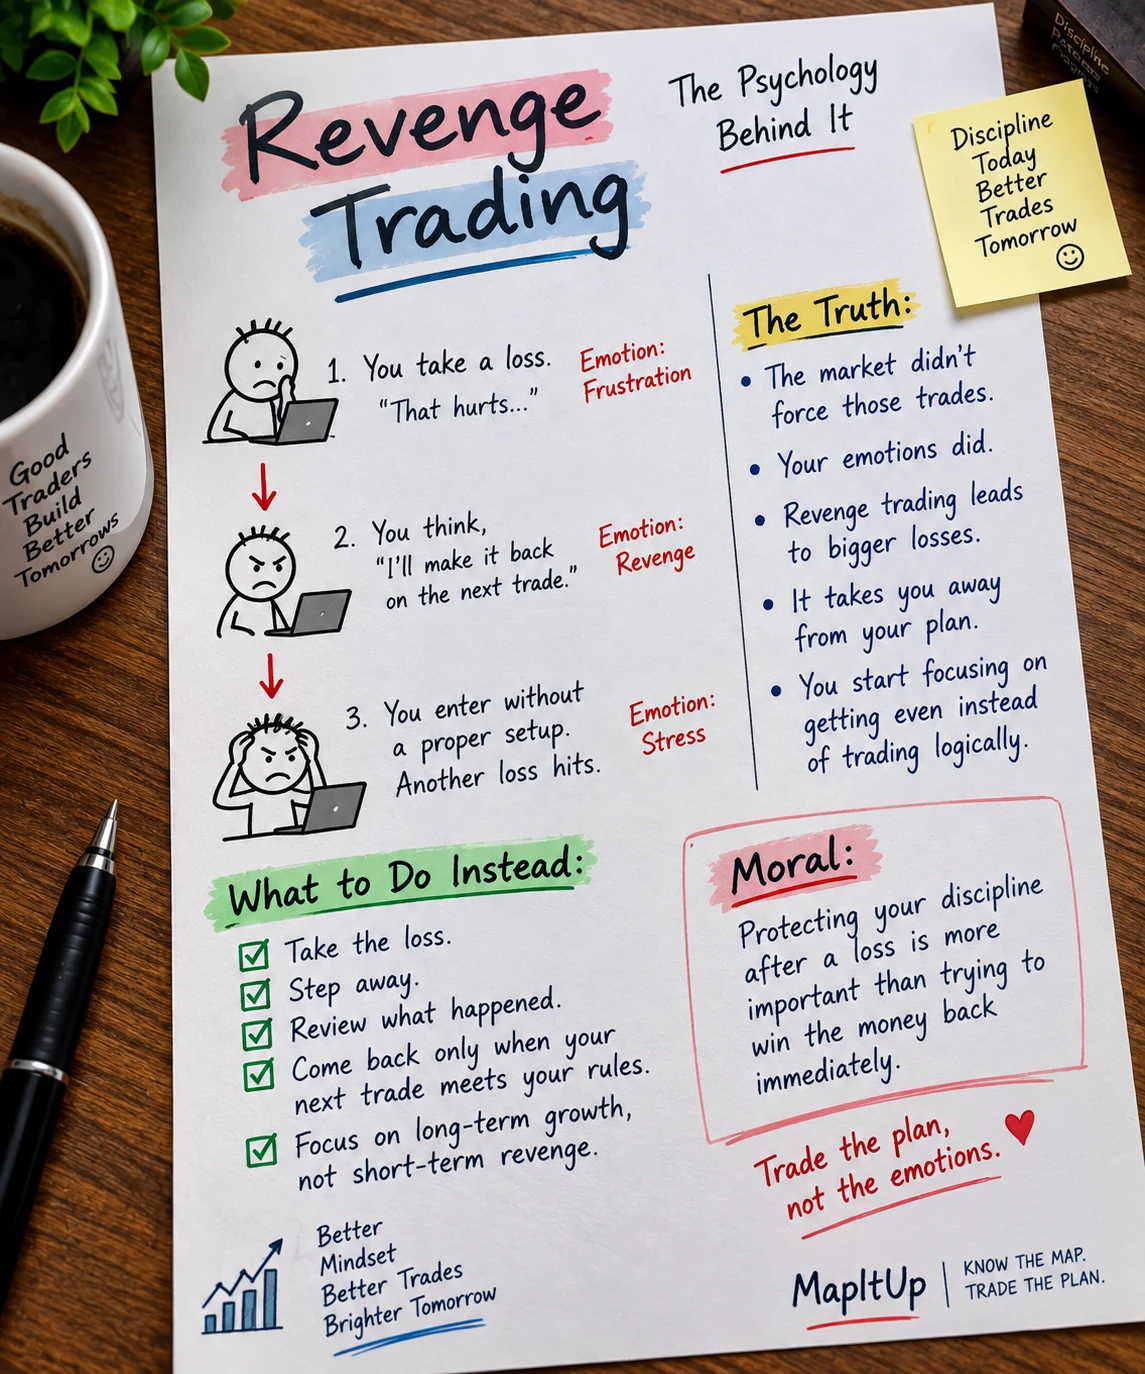 Revenge
Trading
The Psychology
Behind It
Discipline
Today
Better
Trades
Tomorrow
Good
Traders
Build
Better
Tomorrows
1. You take a loss.
"That hurts..."
Emotion:
Frustration
2. You think,
"I'll make it back
on the next trade."
Emotion:
Revenge
3. You enter without
a proper setup.
Another loss hits.
Emotion:
Stress
The Truth:
• The market didn't
force those trades.
• Your emotions did.
• Revenge trading leads
to bigger losses.
• It takes you away
from your plan.
• You start focusing on
getting even instead
of trading logically.
What to Do Instead:
Take the loss.
Step away.
Review what happened.
Come back only when your
next trade meets your rules.
Focus on long-term growth,
not short-term revenge.
Moral:
Protecting your discipline
after a loss is more
important than trying to
win the money back
immediately.
Trade the plan,
not the emotions.
Better
Mindset
Better Trades
Brighter Tomorrow
MapItUp
KNOW THE MAP.
TRADE THE PLAN.